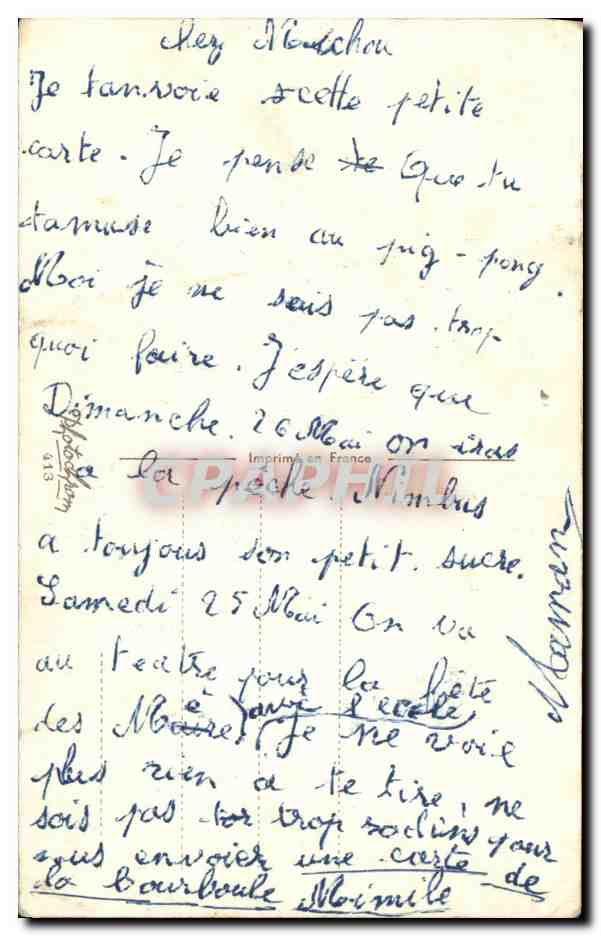 chez Mouchou
Je tanvoie scette petite
carte. Je pense te Que tu
tamuse bien au pig-pong.
Moi je ne sais pas trop
quoi faire. J'espère que
Dimanche. 26 Mai on iras
Imprimé en France
a la pêche. Nimbus
a toujous son petit. sucre.
Samedi 25 Mai On va
au teatre pour la fête
des Mère (avec l'ecole) Je ne voie
plus rien a te lire, ne
sois pas trop radins pour
nous envoier une carte de
la Bourboule Mimile
Maman
Photochrom
413
CPAPHIL